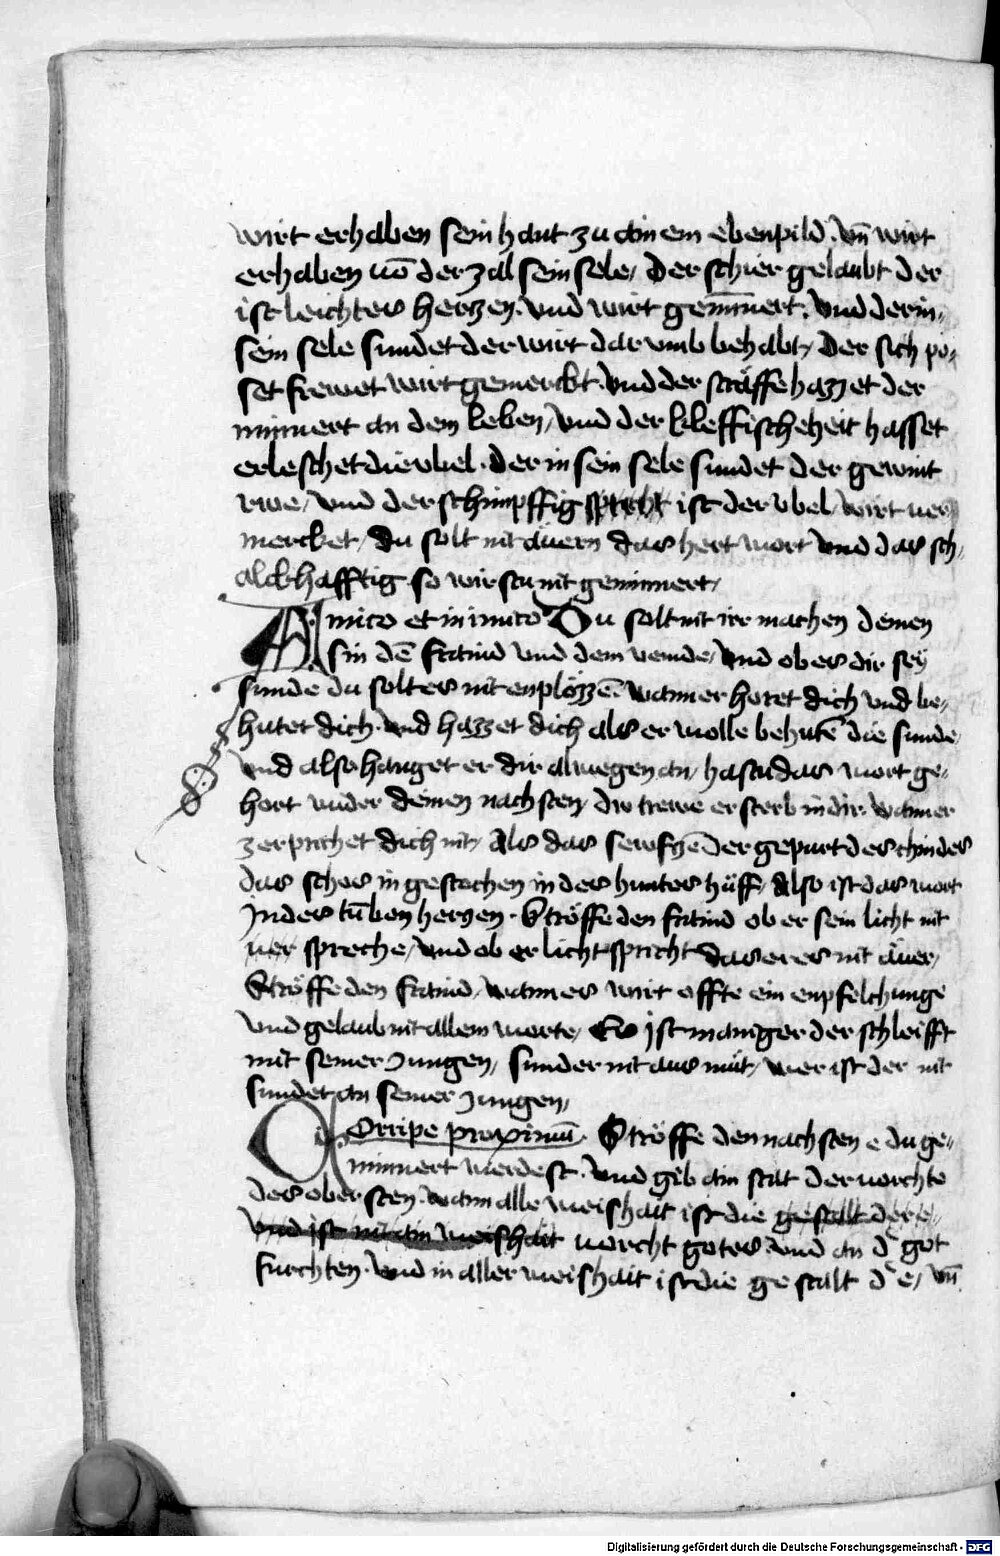 wirt erhaben sein haut zu ainem ebenpild. vn̄ wirt
erhaben vō der zal sein sele, Der schier gelaubt der
ist leichtes herzen. vnd wirt gemīnert. vnd der in
sein sele sundet der wirt dar vmb behabt, Der sich po-
set frewet wirt gemerckt. vnd der sträffe hazzet der
minnert an dem leben, vnd der kleffischeheit hasset
erleschet die vbel. der in sein sele sundet der gewint
rwe, vnd der schimpffig ist der vbel, wirt ver
mercket, du solt nit äuern das hert wort vnd das sch-
alckhafftig so wirstu nit geminnert,
Amico et inimico Du solt nit irr machen deinen
sin dē freund vnd dem veinde, vnd ob es dir sey
sunde du solt es nit enplözzē. wann er horet dich vnd be-
hutet dich. vnd hazzet dich als er wolle behutē die sunde
vnd also hanget er dir alwegen an, hastu das wort ge-
hort wider deinen nachsten, die trewe ersterb in dir. wann er
zerprichet dich nit, Als das sewfzē der gepurt des chindes
das schos in gestochen in des huntes hüff, Also ist das wort
In des tūben herzen. Ströffe den freund ob er sein licht nit
ver spreche, vnd ob er licht spricht das er es nit äuer,
Ströffe den freund, wann es wirt offte ein enpfelchunge
vnd gelaub nit allem worte, Es ist maniger der schleifft
mit seiner zungen, sunder nit aus mut, wer ist der nit
sundet an seiner zungen,
Corripe proximū. Ströffe den nachsten e du ge-
minnert werdest. vnd gib ain stat der vorchte
des obersten. wann alle weishait ist die gestalt der e,
vnd ist nit ain weishait vorcht gotes vnd an d͛ got
furchten. vnd in aller weishait ist die gestalt d͛ e, vn̄
Digitalisierung gefördert durch die Deutsche Forschungsgemeinschaft - DFG